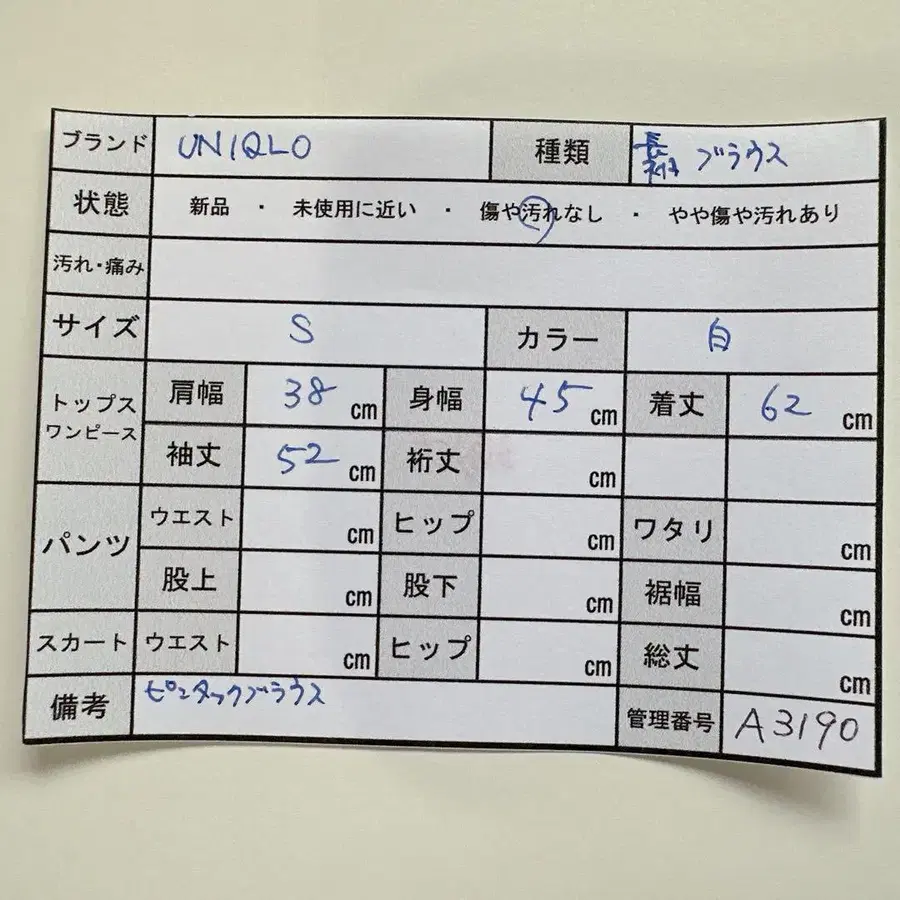 ブランド UNIQLO 種類 長袖 ブラウス
状態 新品 ・ 未使用に近い ・ 傷や汚れなし ・ やや傷や汚れあり
汚れ・痛み
サイズ S カラー 白
トップス ワンピース 肩幅 38 cm 身幅 45 cm 着丈 62 cm
袖丈 52 cm 裄丈 cm
パンツ ウエスト cm ヒップ cm ワタリ cm
股上 cm 股下 cm 裾幅 cm
スカート ウエスト cm ヒップ cm 総丈 cm
備考 ピンタックブラウス 管理番号 A3190